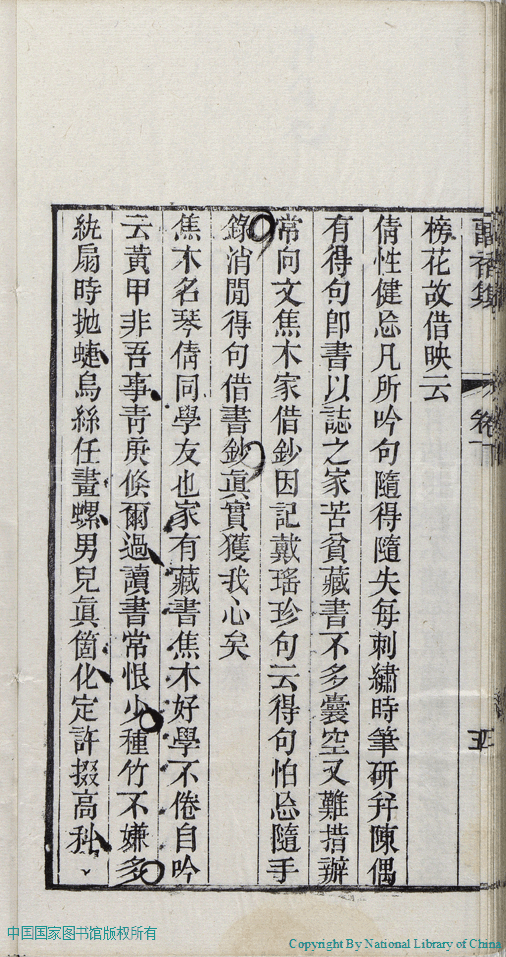 榜花故借映云
倩性健忘凡所吟句隨得隨失每刺繡時筆研并陳偶
有得句卽書以誌之家苦貧藏書不多囊空又難措辦
常向文焦木家借鈔因記戴瑤珍句云得句怕忘隨手
錄消閒得句借書鈔眞實獲我心矣
焦木名琴倩同學友也家有藏書焦木好學不倦自吟
云黃甲非吾事靑庚倏爾過讀書常恨少種竹不嫌多
紈扇時抛蜨烏絲任畫螺男兒眞箇化定許掇高科
卷一
五
中国国家图书馆版权所有
Copyright By National Library of China